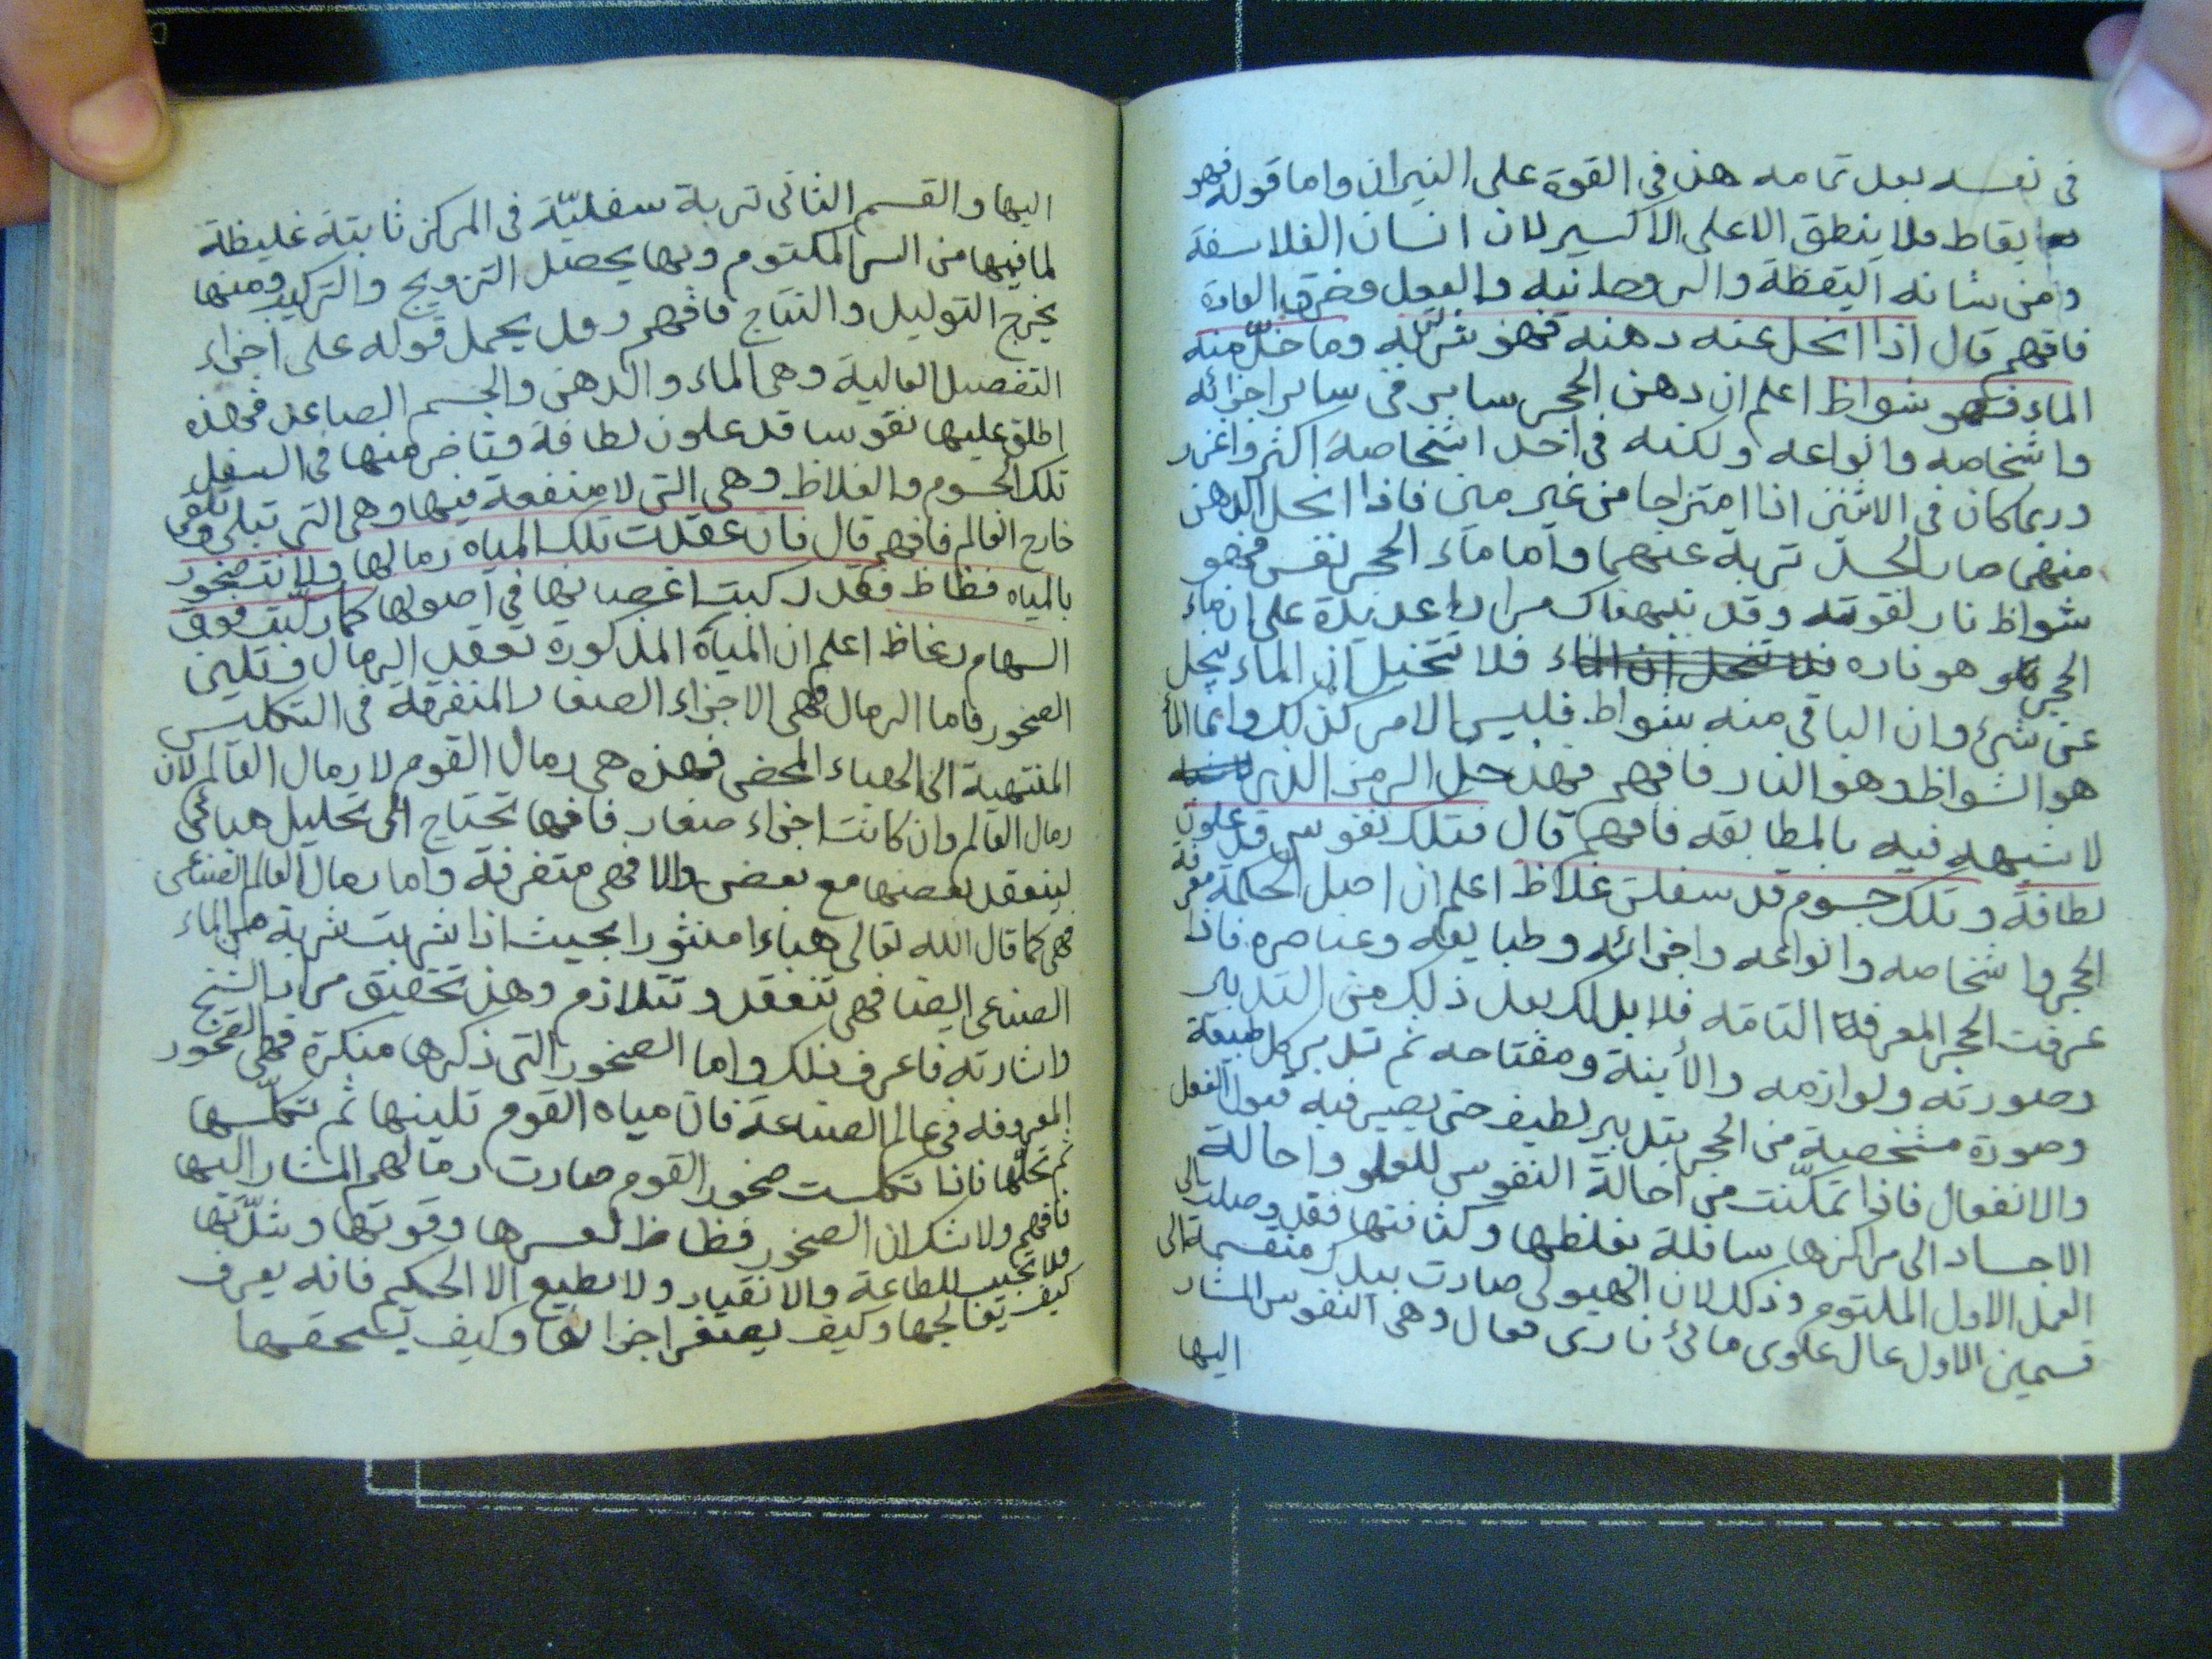 فى نفسه بعد تمامه هذ فى القوة على النيران واما قوله فهو
يقاظ فلا ينطق الا على الاكسير لان انسان الفلاسفة
ومن شانه اليقظة والروحانيه والعمل وخرق العادة
فافهم قال اذا انحل عنه دهنه فهو تربه وما حل منه
الماء فهو شواظ اعلم ان دهن الحجر ساير فى ساير اجزائه
واشخاصه وانواعه ولكنه فى احد اشخاصه اكثر واغزر
وربما كان فى الاثنين اذا امتزجا من غير مين فاذا انحل الدهن
منهن صار الجسد تربة عنهما واما ماء الحجر نفس فهو
شواظ نار لقوته وقد نبهناك مرارا عديدة على ان ماء
الحجر هو ناره فلا تتخيل ان الماء ينحل
عن شئ وان الباقى منه شواظ فليس الامر كذلك وانما الماء
هو الشواظ وهو النار فافهم فهذ حل الرمز الذى
لا شبهه فيه بالمطابقه فافهم قال فتلك نفوس قد علون
لطافة وتلك جسوم قد سفلن غلاظ اعلم ان اصل الحكمة معرفة
الحجر واشخاصه وانواعه واجزائه وطبايعه وعناصره فاذا
عرفت الحجر المعرفة التامة فلا بد لك بعد ذلك من التدبير
وصورته ولوازمه والأينة ومفتاحه ثم تدبر كل طبيعة
وصورة مشخصية من الحجر بتدبير لطيف حتى يصير فيه قبول الفعل
والانفعال فاذا تمكّنت من احالة النفوس للعلو واحالة
الاجساد الى مراكزها سافلة بغلظها وكثافتها فقد وصلت الى
العمل الاول المكتوم وذلك لان الهيولى صارت بيدك منقسمة الى
قسمين الاول عال علوى مائى نارى فعال وهى النفوس المشار
اليها
اليها والقسم الثانى تربة سفليّة فى المركز ثابتة غليظة
لما فيها من السر المكتوم وبها يحصل التزويج والتركيب ومنها
يخرج التوليد والنتاج فافهم وقد يحمل قوله على اجزاء
التفصيل العالية وهى الماء والدهن والجسم الصاعد فهذه
اطلق عليها نفوسا قد علون لطافة ويتاخر منها فى السفل
تلك الجسوم والغلاظ وهى التى لا منفعة فيها وهى التى تبلى وتلقى
خارج العالم فافهم قال فان عقدت تلك المياه رمالها ولانت صخور
بالمياه فظاظ فقد ركبت اغصانها فى اصولها كما ركبت فوق
السهام رعاظ اعلم ان المياة المذكورة تعقد الرمال وتلين
الصخور فاما الرمال فهى الاجزاء الصغار المتفرقة فى التكليس
المنتهية الى الهباء المحض فهذه هى رمال القوم لا رمال العالم لان
رمال العالم وان كانت اجزاء صغار فانها تحتاج الى تحليل هبائى
لينعقد بعضها مع بعض والا فهى متفرقة واما رمال العالم الصناعى
فهى كما قال الله تعالى هباءا منثورا بحيث اذا شربت شربة من الماء
الصناعى ايضا فهى تنعقد وتتلازم وهذ تحقيق مراد الشيخ
واشارته فاعرف ذلك واما الصخور التى ذكرها منكرة فهى الصخور
المعروفه فى عالم الصناعة فان مياه القوم تلينها ثم تكلّسها
ثم تحلها فاذا تكلست صخور القوم صارت رمالهم المشار اليها
فافهم ولا شك ان الصخور فظاظ لعسرها وقوتها وشدّتها
فلا تجيب للطاعة والانقياد ولا تطيع الا الحكيم فانه يعرف
كيف يعالجها وكيف يصغر اجزائها وكيف يسحقها